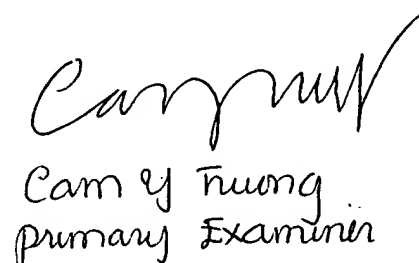 Cam Y Truong
Primary Examiner